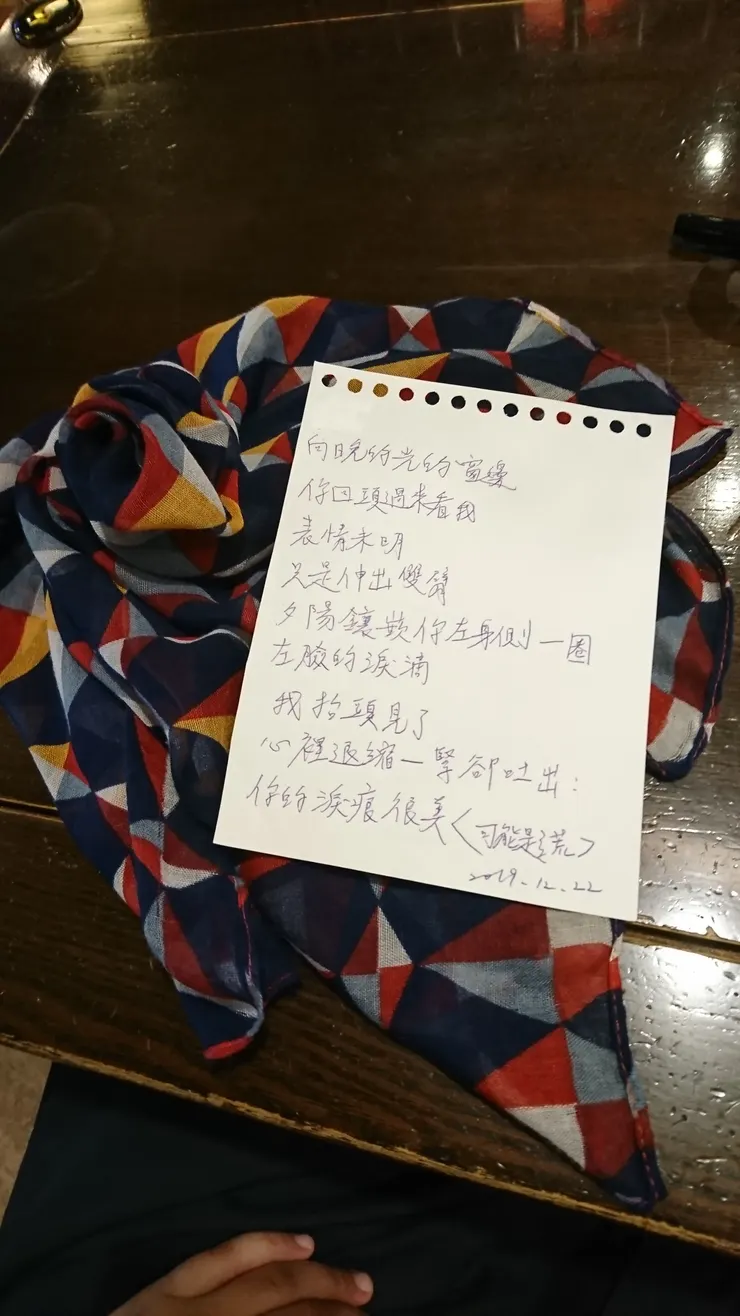 向晚的光的窗邊
你回頭過來看我
表情未明
只是伸出雙臂
夕陽鑲嵌你左身側一圈
左臉的淚滴
我抬頭見了
心裡退縮一緊卻吐出：
你的淚痕很美<可能是謊>
2019.12.22